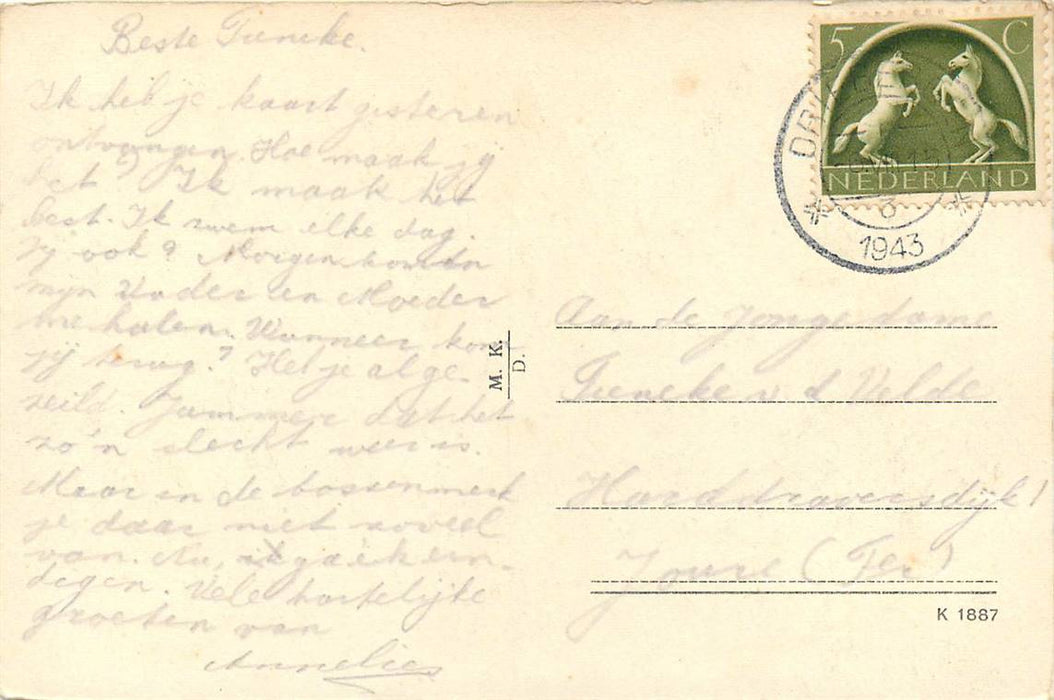 Beste Tieneke.
Ik heb je kaart gisteren
ontvangen. Hoe maak jij
het? Ik maak het
best. Ik zwem elke dag.
jij ook? Morgen komen
mijn Vader en Moeder
me halen. Wanneer kom
jij terug? Heb je al ge-
zeild. Jammer dat het
zo'n slecht weer is.
Maar in de bossen merk
je daar niet zoveel
van. Nu, ik ga eindigen
Vele hartelijke
groeten van
Annelies
5 C
NEDERLAND
3
1943
M. K.
D.
Aan de Jonge dame
Tieneke v d Velde
Harddraversdijk 1
Joure (Fer)
K 1887